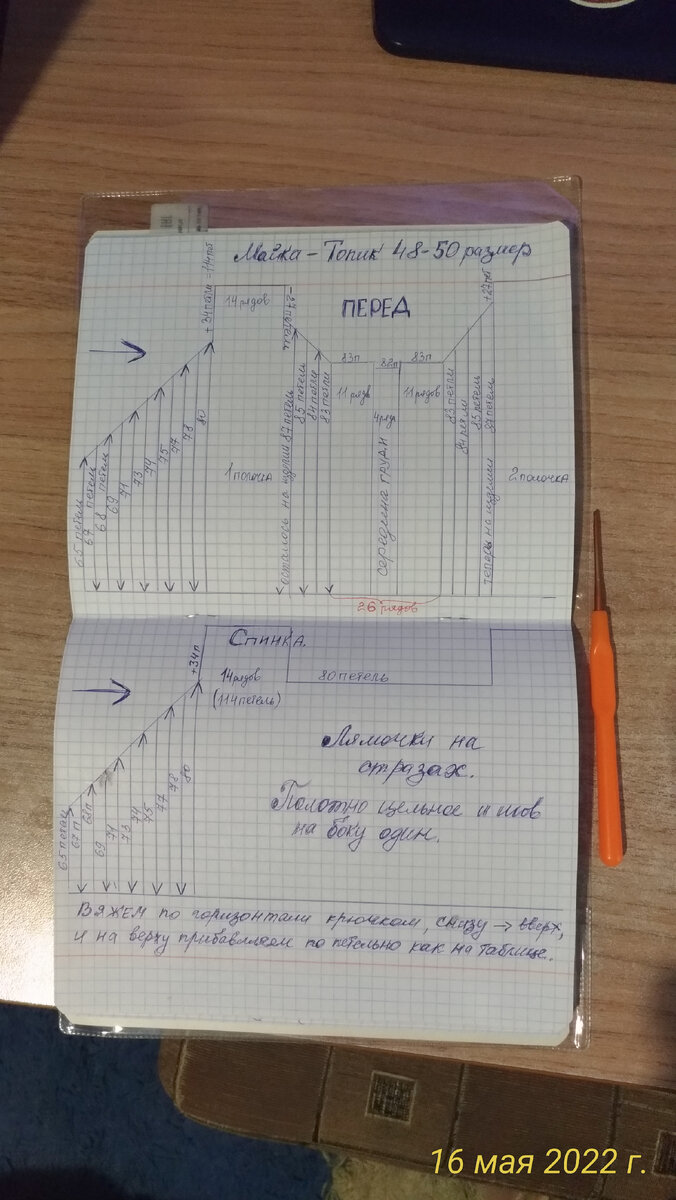 Майка - Топик 48-50 размер
ПЕРЕД
+ 34 петли = 114 пет
14 рядов
- 27 петель
+ 27 пет
83п
82п
83п
11 рядов
4 ряд
11 рядов
65 петель
67 петель
68 петель
69
71
73
74
75
77
78
80
1 полочка
осталось на изделии 87 петель
85 петель
84 петли
83 петли
середина груди
83 петли
84 петли
85 петель
теперь на изделии 87 петель
2 полочка
26 рядов
Спинка.
+34п
14 рядов
(114 петель)
80 петель
65 петель
67 п
68 п
69
71
73
74
75
77
78
80
Лямочки на
стразах.
Полотно цельное и шов
на боку один.
ВЯЖЕМ по горизонтали крючком, снизу → вверх,
и на верху прибавляем по петельно как на таблице.
16 мая 2022 г.